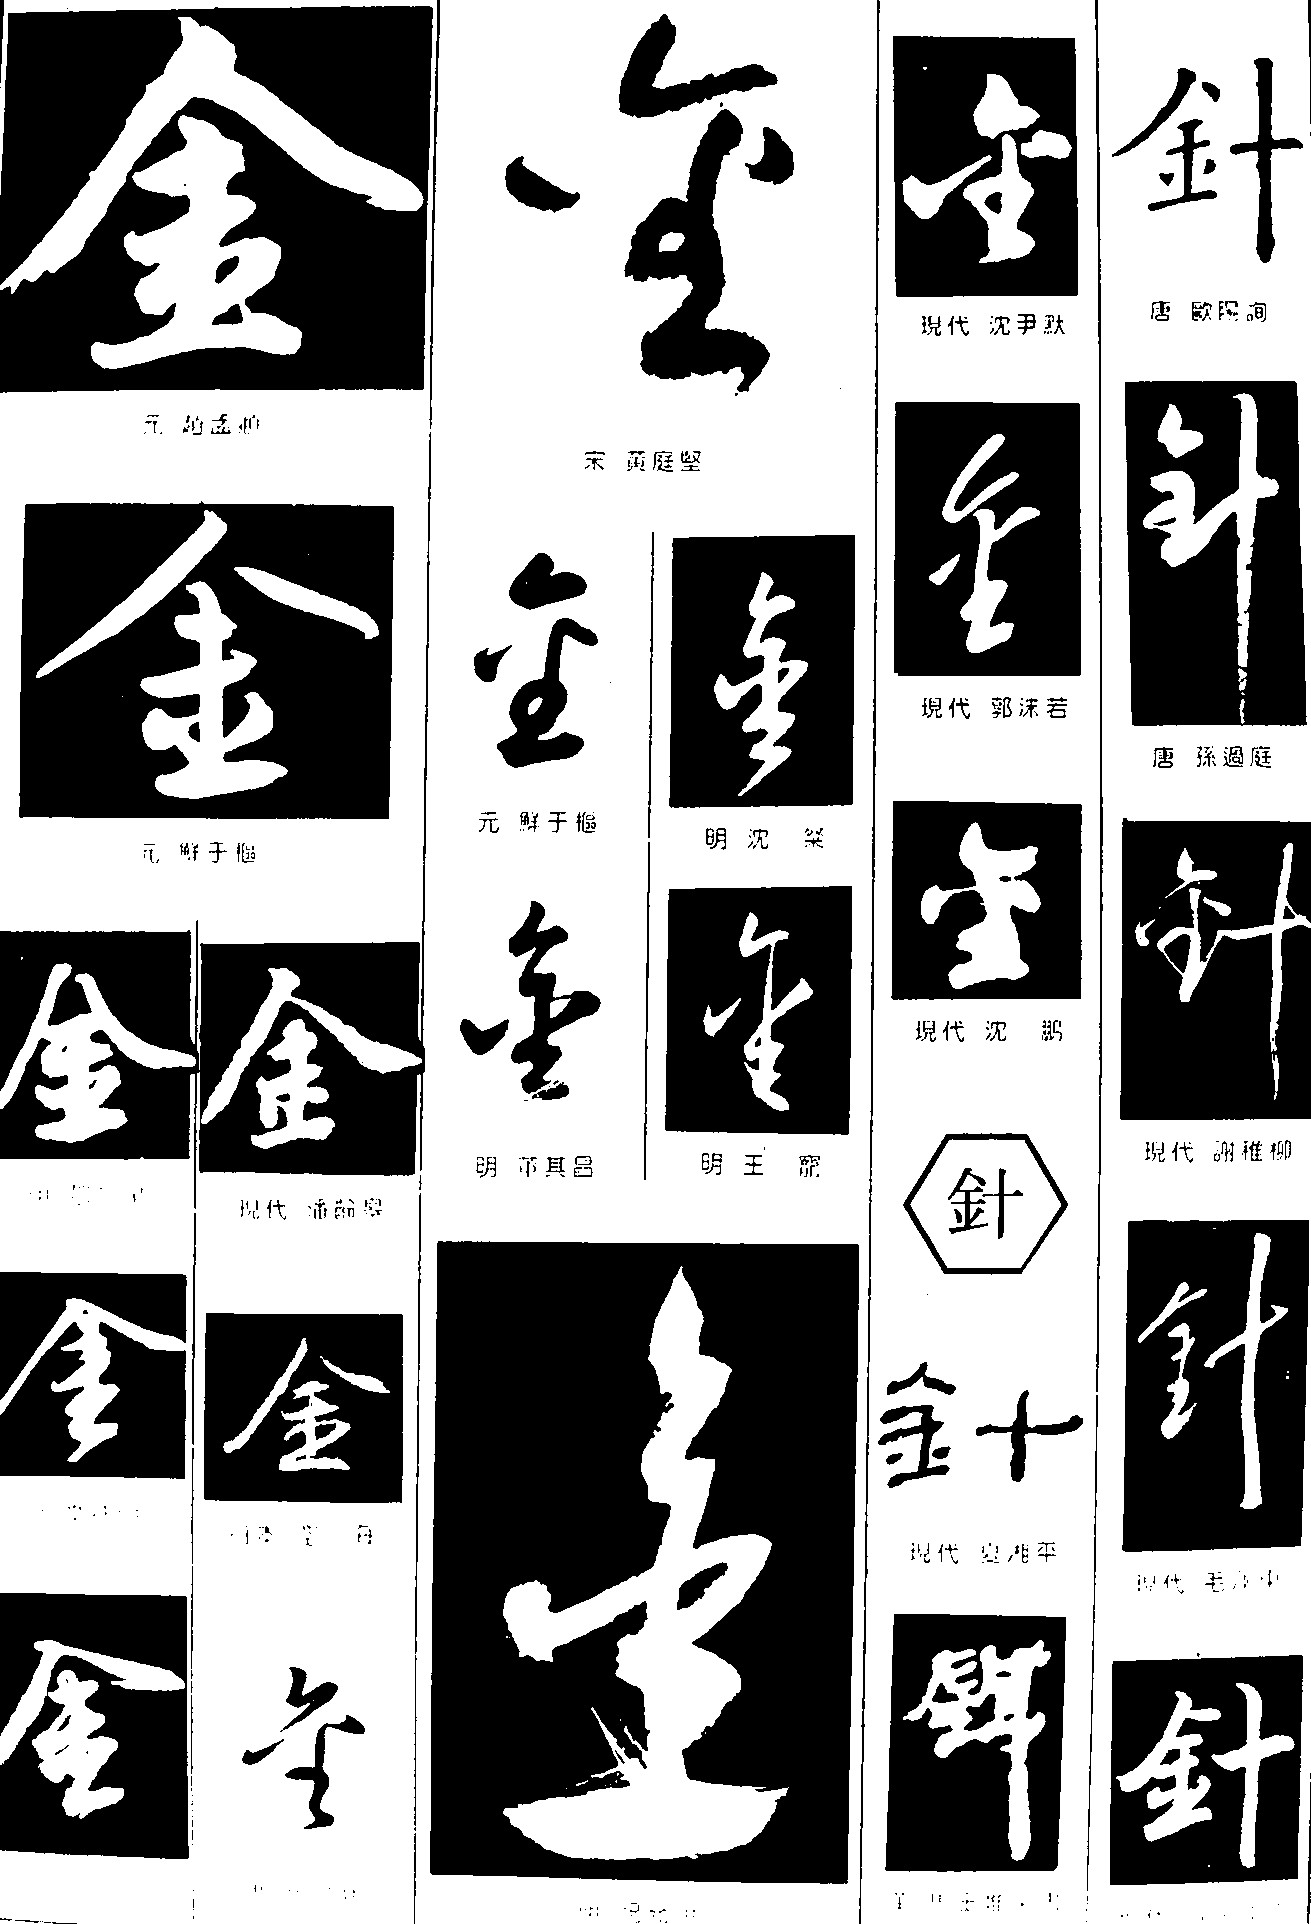 金
元 趙孟頫
金
元 鮮于樞
金
金
現代 潘齡皋
金
金
金
金
金
宋 黃庭堅
金
元 鮮于樞
金
明 沈 粲
金
明 董其昌
金
明 王 寵
金
金
現代 沈尹默
金
現代 郭沫若
金
現代 沈 鵬
針
針
現代 夏湘平
針
唐 歐陽詢
針
唐 孫過庭
針
現代 謝稚柳
針
現代
針